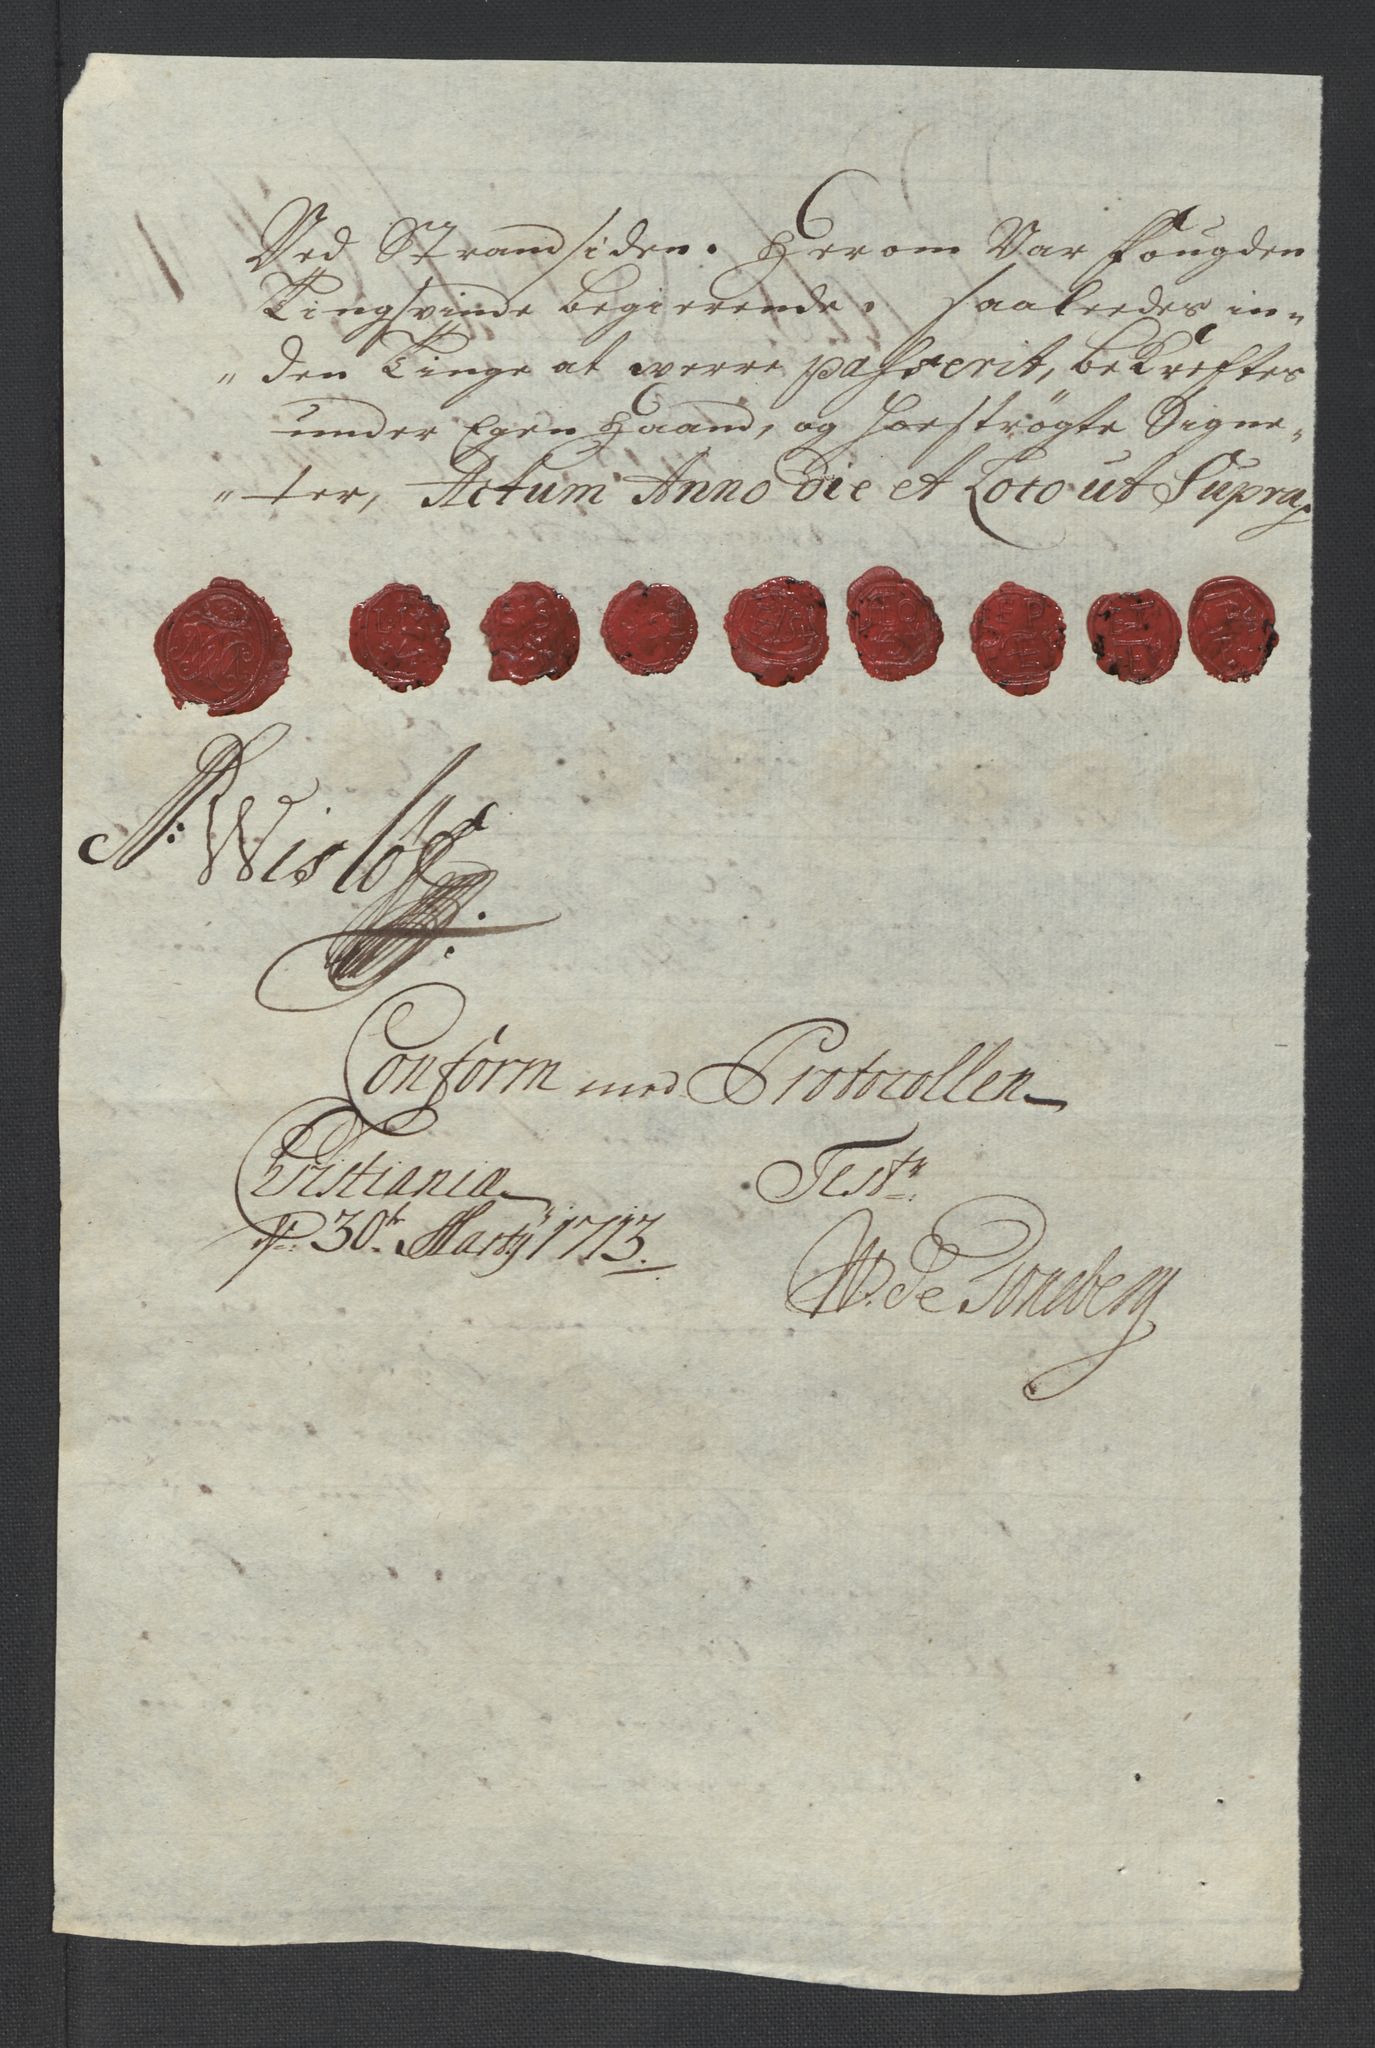 Ved Strandsiden. Herom Var Fougden
Tingsvinde begierende. Saaleedes in-
"den Tinge at werre passerit, bekreftes
under Egen Haand, og hoeströgte Signe-
"ter, Actum Anno die et Loco ut Supra,
N: Wislöff
Conform med Protocollen
Christiania
d: 30te Marty 1713.
Test:
W. de Tonsberg